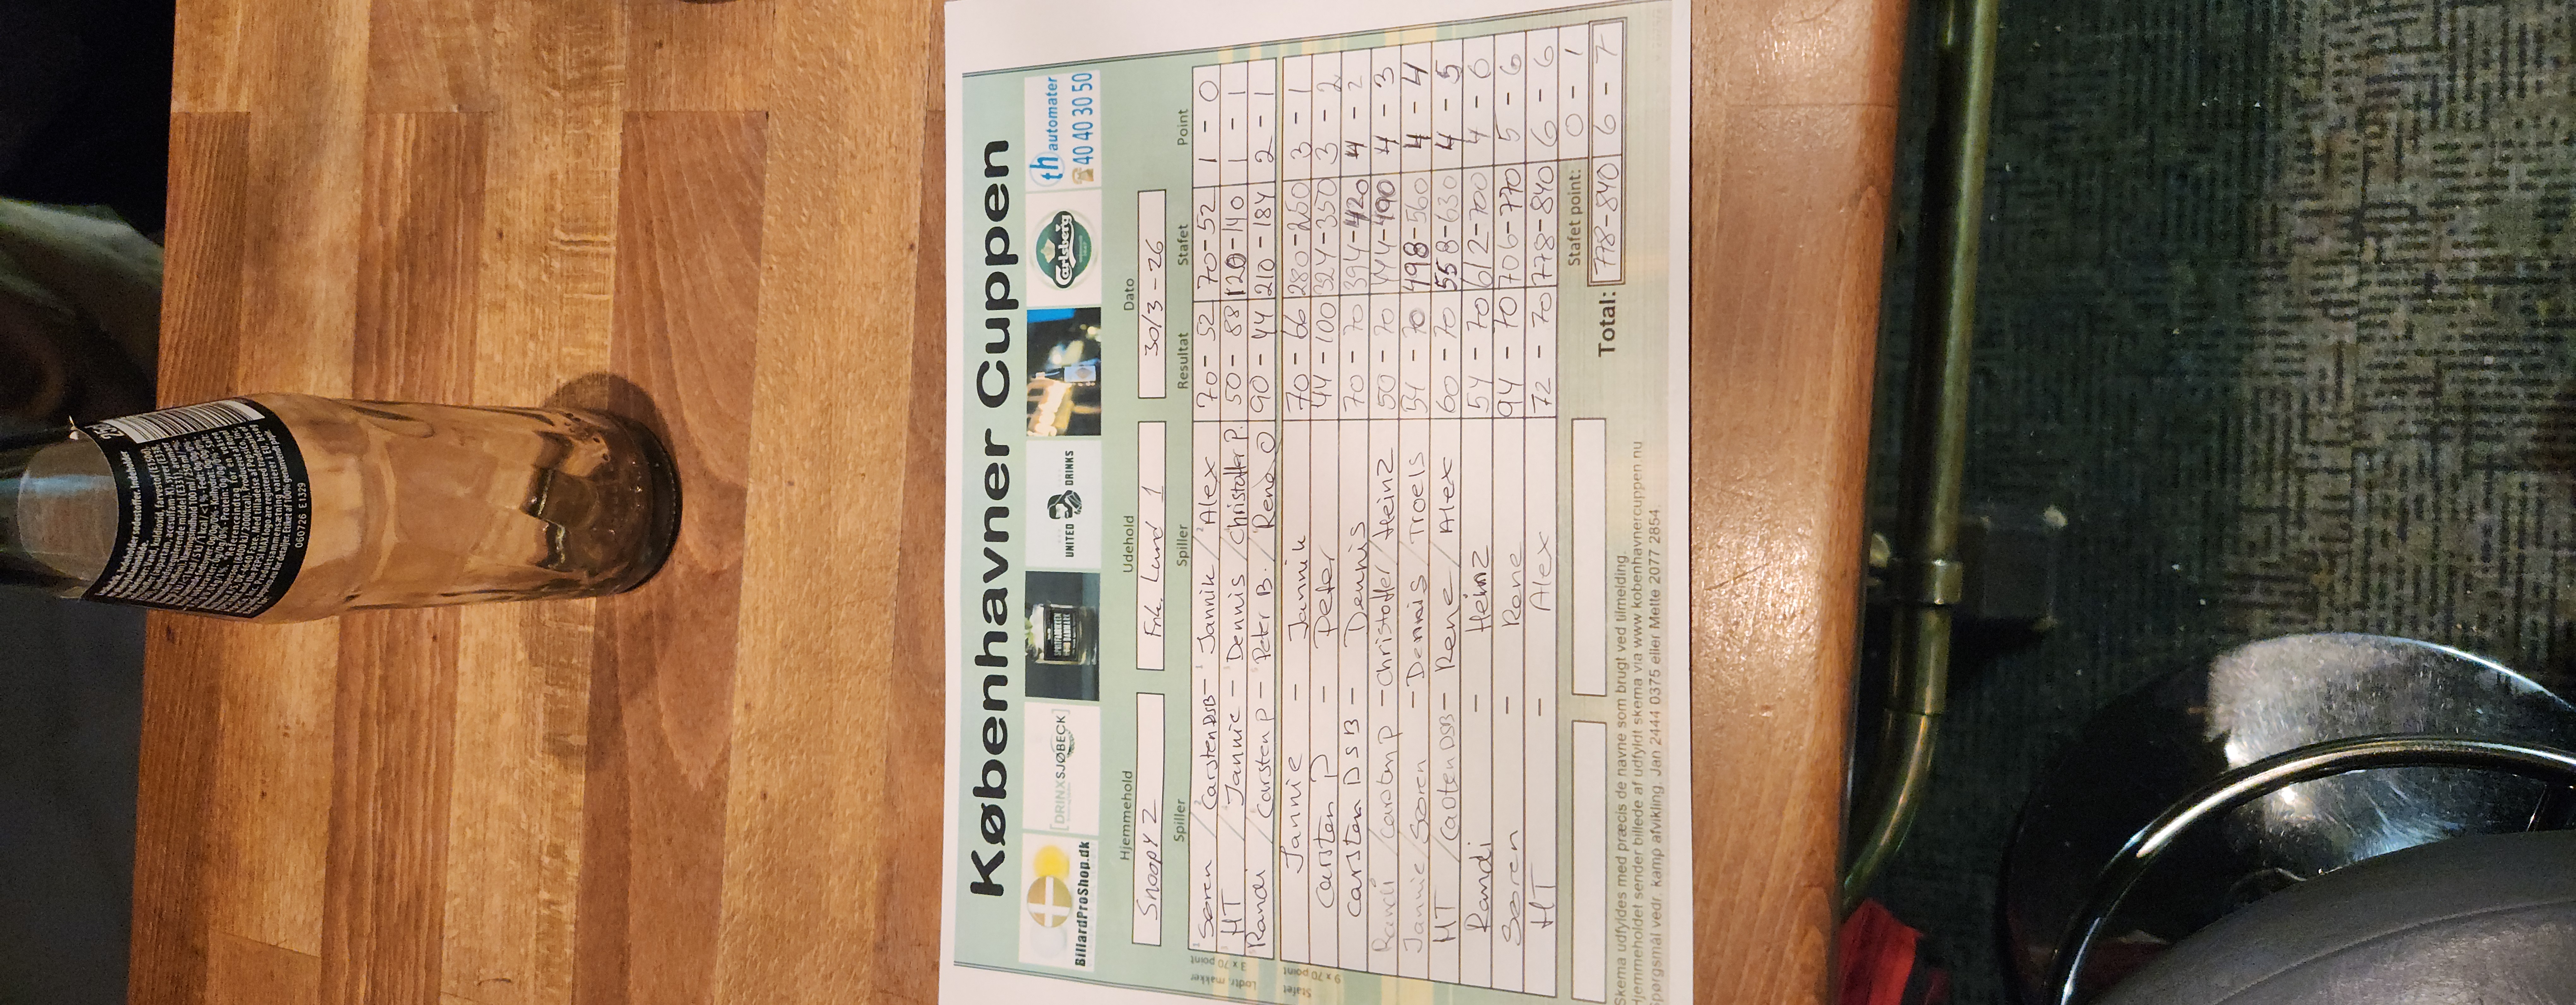 Københavner Cuppen
BillardProShop.dk
[DRINXSJØBECK]
UNITED DRINKS
Carlsberg
th automater
40 40 30 50
Hjemmehold Udehold Dato
Snoopy 2 Frk. Lund 1 30/3-26
Spiller Spiller Resultat Stafet Point
Lodtr. makker
3 x 70 point
Søren / Carsten DSB - Jannik / Alex 70-52 70-52 1-0
HT / Jannie - Dennis / Christoffer P. 50-88 120-140 1-1
Randi / Carsten P - Peter B. / Rene O 90-44 210-184 2-1
Stafet
9 x 70 point
Jannie - Jannik 70-66 280-250 3-1
Carsten P - Peter 44-100 324-350 3-2
Carsten DSB - Dennis 70-70 394-420 4-2
Randi / Carsten P - Christoffer / Heinz 50-70 444-490 4-3
Jannie / Søren - Dennis / Troels 54-70 498-560 4-4
HT / Carsten DSB - Rene / Alex 60-70 558-630 4-5
Randi - Heinz 54-70 612-700 4-6
Søren - Rene 94-70 706-770 5-6
HT - Alex 72-70 778-840 6-6
Stafet point: 0-1
Total: 778-840 6-7
Skema udfyldes med præcis de navne som brugt ved tilmelding.
Hjemmeholdet sender billede af udfyldt skema via www.kobenhavnercuppen.nu
Spørgsmål vedr. kamp afvikling. Jan 2444 0375 eller Mette 2077 2854
060726 E1329